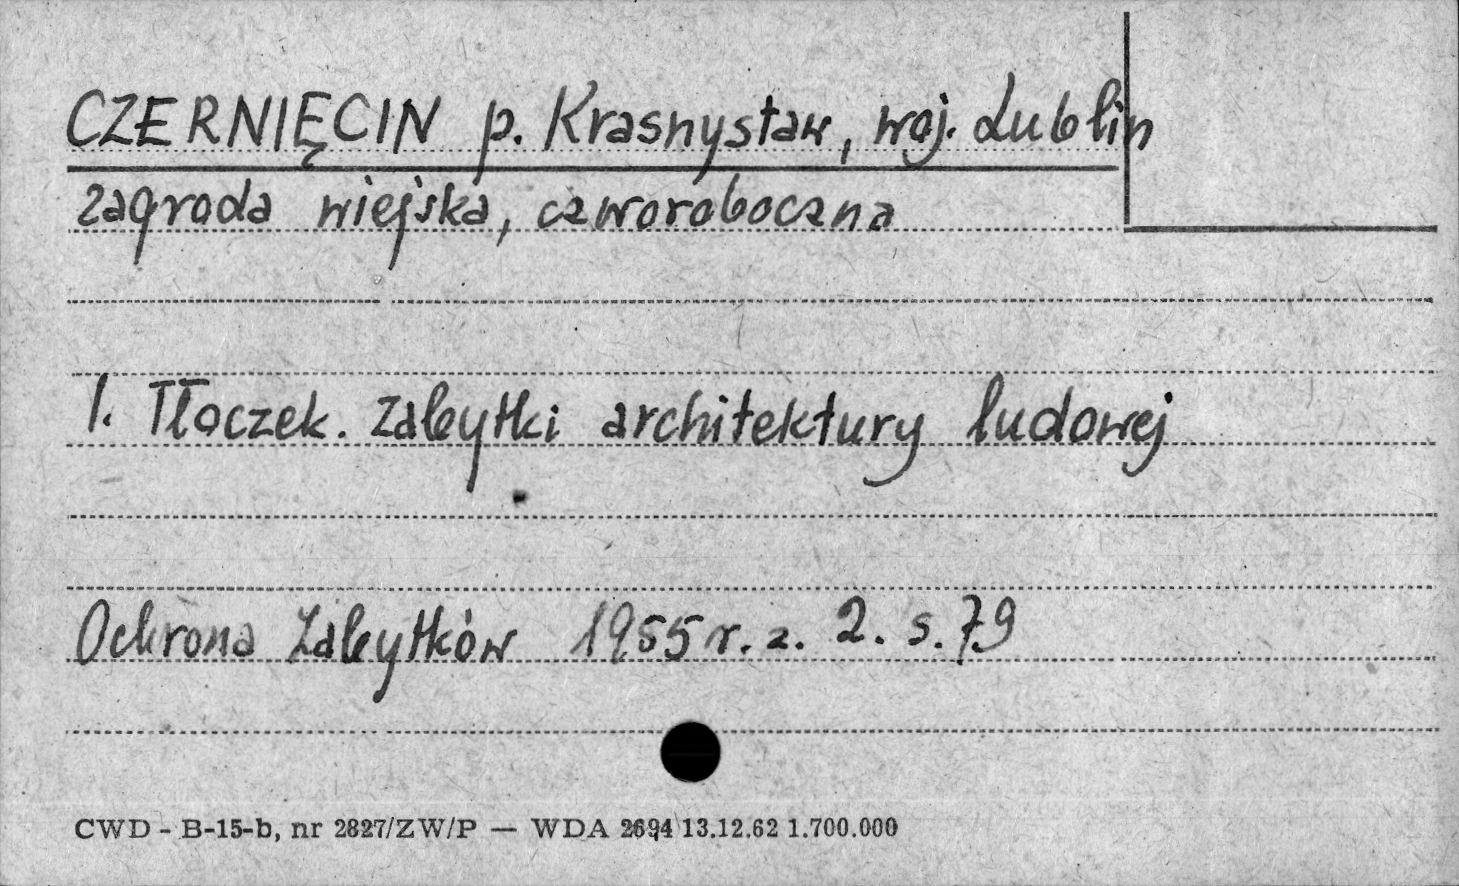 CZERNIĘCIN p. Krasnystaw, woj. Lublin
zagroda wiejska, czworoboczna
I. Tłoczek. Zabytki architektury ludowej
Ochrona Zabytków 1955 r. z. 2. s. 79
CWD - B-15-b, nr 2827/ZW/P — WDA 2694 13.12.62 1.700.000